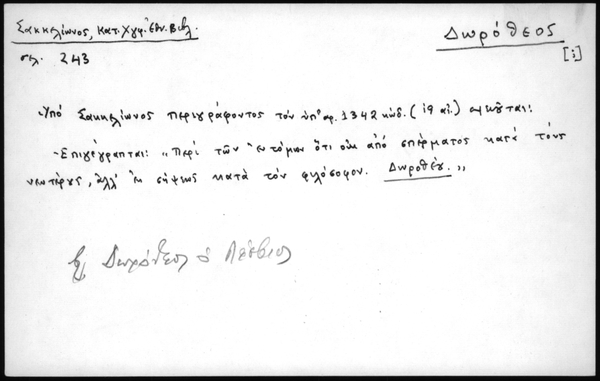 Σακκελίωνος, Κατ. Χγφ. Ἐθν. Βιβλ.
Δωρόθεος
σελ. 243
[i]
Ὑπό Σακκελίωνος περιγράφοντος τόν ὑπ' αρ. 1342 κώδ. (19 αἰ.)
-Ἐπιγέγραπται: „Περί τῶν ἐντόμων ὅτι οὐκ ἀπό σπέρματος κατά τούς
νεωτέρους, ἀλλ' ἐκ σήψεως κατά τόν φιλόσοφον. Δωροθέου.”
Δωρόθεος ὁ Λέσβιος